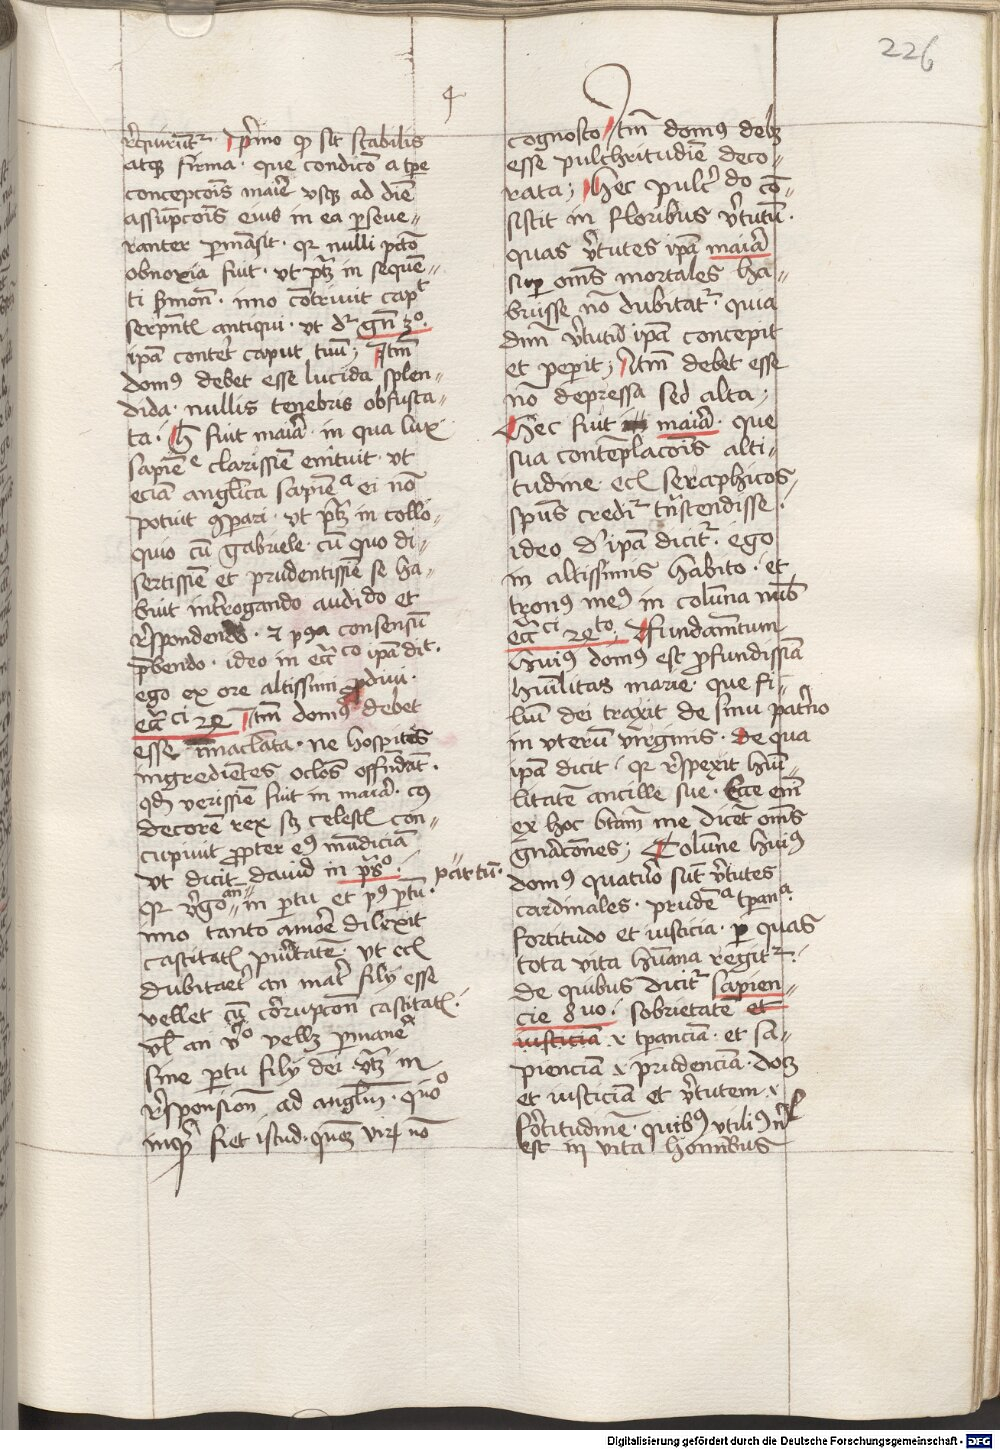 226
4
reqͥruntᷣ · Primo ꝙ sit stabilis
atqꝫ firma · que condicō a tꝑe
concepcōis marie vsqꝫ ad diē
assūpcōis eius in ea ꝑseue⸗
ranter ꝑmāsit · qꝛ nulli pctō
obnoxia fuit · vt ptꝫ in sequē⸗
ti ẜmon̄ · imo cōtriuit capᵗ
serpētꝭ antiqui · vt dᷣ gn̄ 3º ·
ipā conteret caput tuū; Itm̄
domꝰ debet esse lucida splen⸗
dida · nullis tenebris obfusca⸗
ta · h̄ fuit maria · in qua lux
sapiēᵉ clarissīe emicuit · vt
eciā angl̄ica sapiēᵃ ei nō
potuit ꝯꝑari · vt ptꝫ in collo⸗
quio cū gabriele · cū quo di⸗
sertissīe et prudentissīe se ha⸗
buit int̄rogando audīdo et
respondendo · ⁊ ꝯsensū
p̄bendo · ideo in eccͨᶜᵒ ipā dīt ·
ego ex ore altissimi ꝓdiui ·
eccͨᶜⁱ 24 Itm̄ domꝰ debet
esse īmaclata · ne hospites
ingredientes oclōs offendāt ·
qd̄ verissīe fuit in maria · cꝰ
decorē rex sꝫ celestꝭ con⸗
cupiuit ꝓpter eꝰ mūdiciā
vt dicit dauid in p̄sº · partū ·
qꝛ v̄go an̄ in ꝑtu et pꝰ ꝑtū ·
imo tanto amoē dilexit
castitatꝭ puritatē · vt ecꝭ
dubitaret an mat̄ filij esse
vellet cū corrupcōn castitatꝭ ·
vl̄ an vͦgo vellꝫ ꝑmane
sine ꝑtu filij dei vtꝫ in
respōsion̄ ad angl̄m · quoº
inqͥ fiet istud · qm̄ virū nō
cognosco Itm̄ domꝰ debꝫ
esse pulchritudīe deco⸗
rata; Hec pulcͬdo cō⸗
sistit in floribus v̄tutū ·
quas v̄tutes ipā mariā
suꝑ om̄s mortales ha⸗
buisse nō dubitatᷣ · quia
dn̄m v̄tutū ipā concepit
et peꝑit; Itm̄ debet esse
nō depressa sed alta;
Hec fuit maria · que
sua contēplacōis alti⸗
tudine ecꝭ seraphicos
sp̄us credit̄ tn̄scendisse ·
ideo d̄ ipā dicitᷣ · ego
in altissimis habito · et
tronꝰ meꝰ in colūna nub̄
eccͨᶜⁱ 24ᵗᵒ · Fundamentum
huiꝰ domꝰ est ꝓfundissīa
humilitas marie · que fi⸗
liū dei traxit de sinu pat̄no
in vterū virginis · de qua
ipā dicit · qꝛ respexit hūi⸗
litatē ancille sue · Ecce em̄
ex hoc btām me dicēt om̄s
gn̄acōnes; Colūne huiꝰ
domꝰ quatuor sūt v̄tutes
cardinales · prudēᵃ tꝑanᵃ ·
fortitudo et iusticia · ꝑ quas
tota vita hūana regitᷣ ·
de quibus dicitᷣ sapien⸗
cie 8ᵘᵒ · sobrietatē et
iusticiā ⁊ tꝑanciā · et sa⸗
pienciā ⁊ prudenciā · docꝫ
et iusticiā et v̄tutem ⁊
fortitudinē · quibꝰ vtiliꝰ nl̄
est in vita hominibus
Digitalisierung gefördert durch die Deutsche Forschungsgemeinschaft - DFG